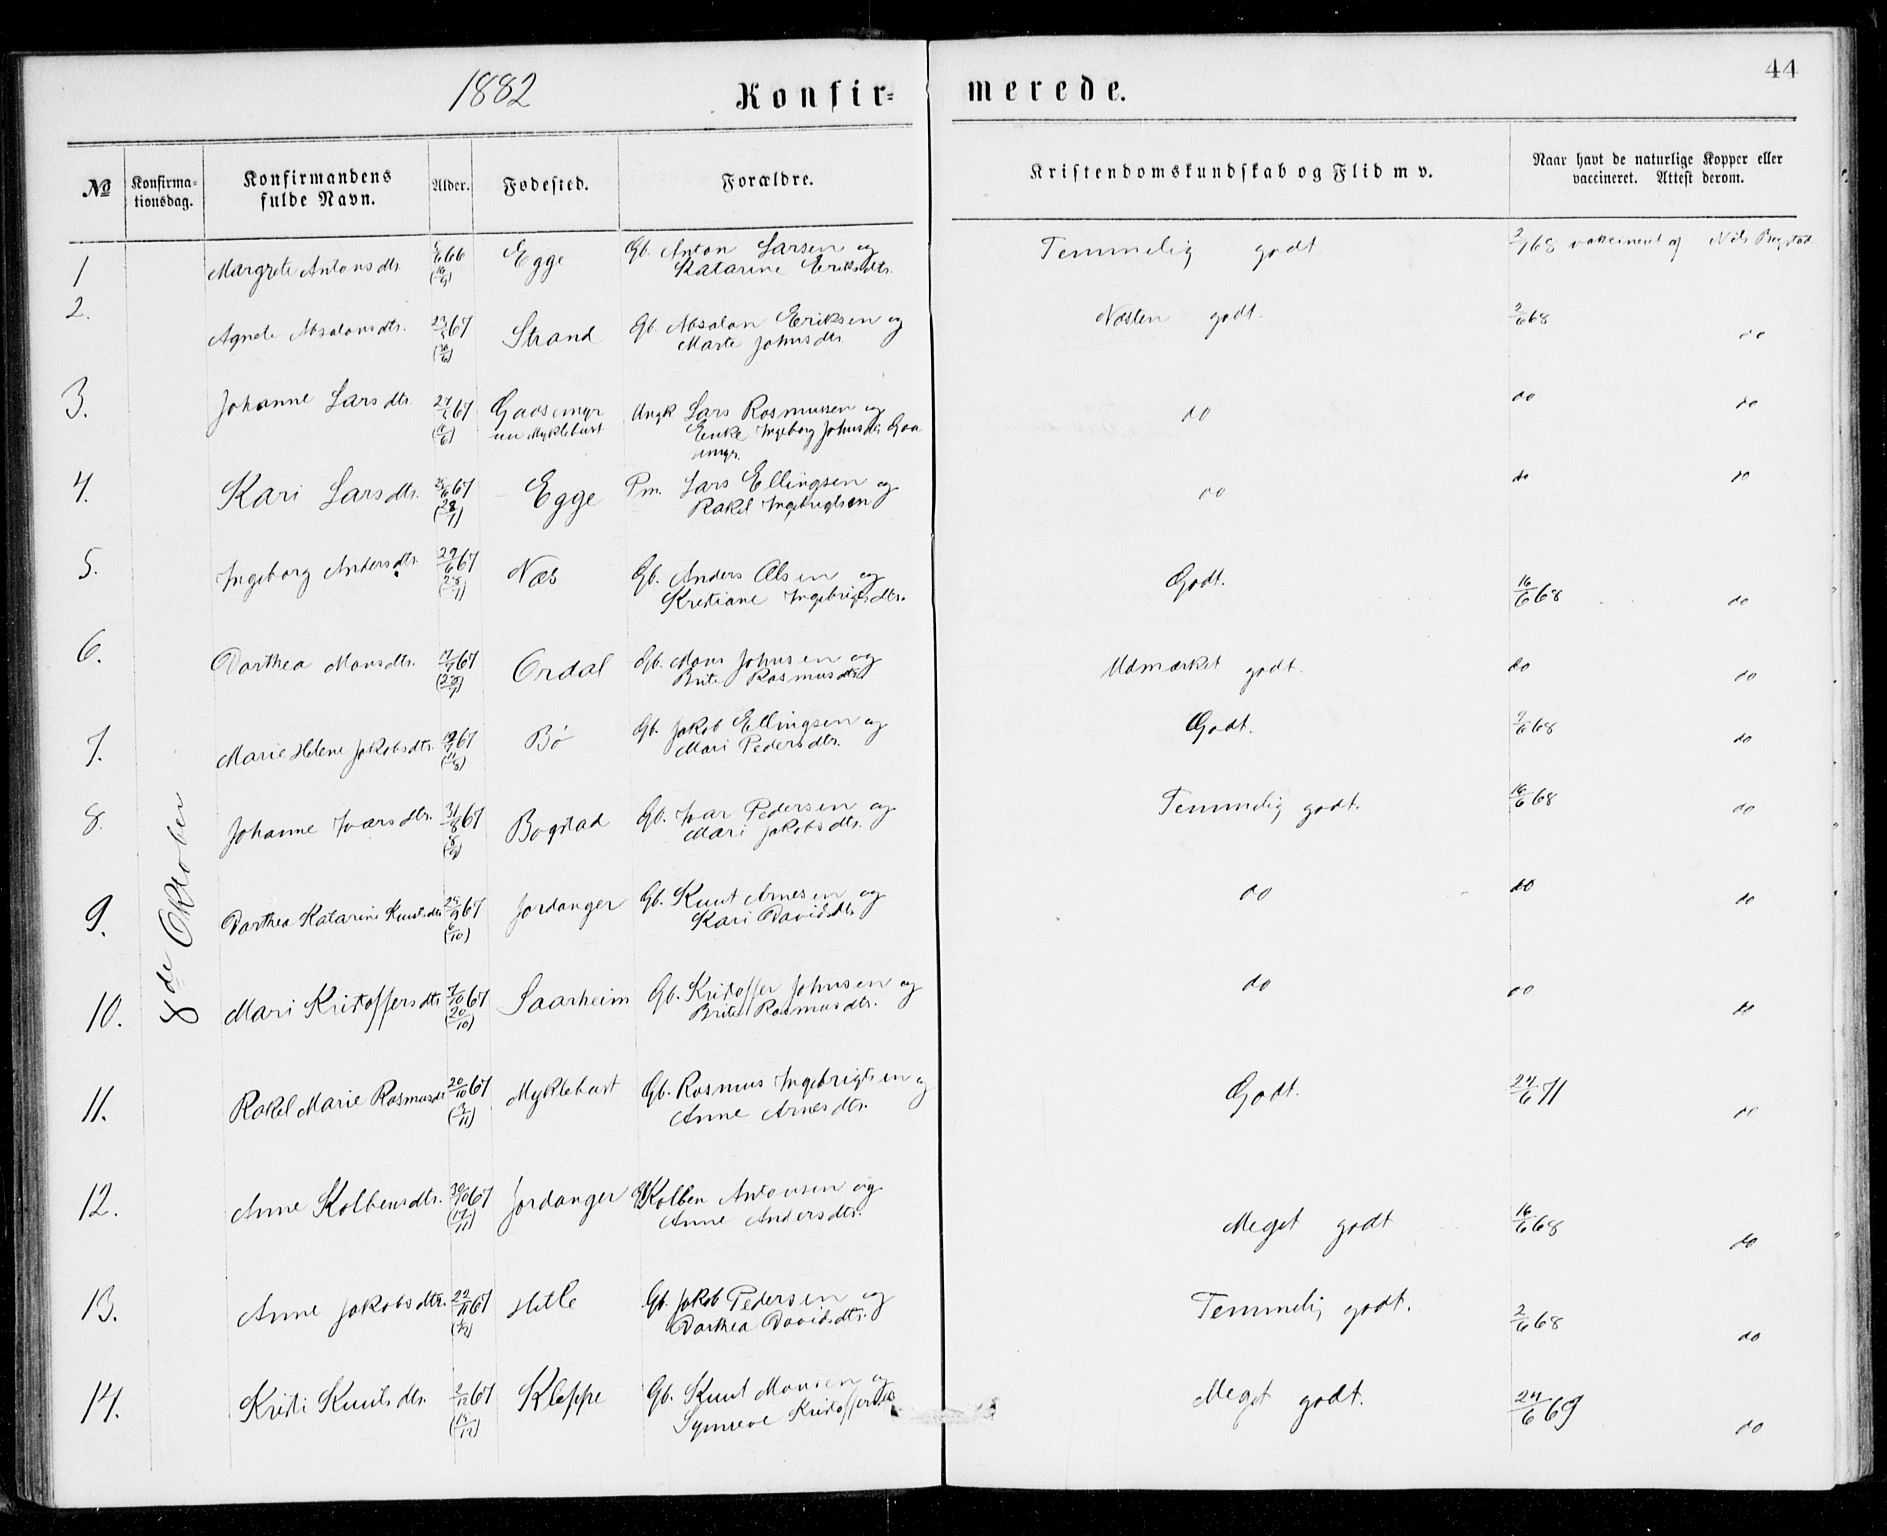 44
1882 Konfir= merede.
№ Konfirma-tionsdag. Konfirmandens fulde Navn. Alder. Fødested. Forældre. Kristendomskundskab og Flid m v. Naar havt de naturlige Kopper eller vaccineret. Attest derom.
8de Oktober
1 Margrete Antonsdtr. 66 Egge Gb. Anton Larsen og Temmelig godt 68 vaccineret af Nils Bogstad
Katarine Eriksdtr.
2. Agnete Absalonsdtr. 67 Strand Gb. Absalon Eriksen og Næsten godt. 2/6 68 do
Marte Johnsdtr
3. Johanne Larsdtr. 67 Ungk Lars Rasmussen og do do do
un Myklebust Enke Ingeborg Johnsdtr
4. Kari Larsdtr. 67 Egge Pm. Lars Ellingsen og do do do
(28/7) Rakel Ingebrigtsen
5. Ingeborg Andersdtr. 29/6 67 Næs Gb. Anders Olsen og Godt. 16/6 68 do
(28/7) Kristiane Ingebrigtsdtr.
6. Dorthea Monsdtr. 67 Ordal Gb. Mons Johnsen og Udmærket godt. do do
(28/7) Brite Rasmusdtr
7. Marie Helene Jakobsdtr. 67 Bø Gb. Jakob Ellingsen og Godt. 68 do
Mari Pedersdtr.
8. Johanne Ivarsdtr. 31/8 67 Bogstad Gb. Ivar Pedersen og Temmelig godt. 16/6 68 do
Mari Jakobsdtr.
9. Dorthea Katarine Knutsdtr 67 Jordanger Gb. Knut Arnesen og do do do
(6/10) Kari Davidsdtr
10. Mari Kristoffersdtr 7/10 67 Saarheim Gb. Kristoffer Johnsen og do do do
(20/10) Brite Rasmusdtr.
11. Rakel Marie Rasmusdtr 20/10 67 Myklebust Gb. Rasmus Ingebrigtsen og Godt. 24/6 71 do
(3/11) Anne Arnesdtr.
12. Anne Kolbensdtr. 30/10 67 Jordanger Kolben Antonsen og Meget godt 16/6 68 do
(17/11) Anne Andersdtr.
13. Anne Jakobsdtr. 22/11 67 Hitle Gb. Jakob Pedersen og Temmelig godt. 2/6 68 do
Dorthea Davidsdtr.
14. Kristi Knutsdtr. 2/12 67 Kleppe Gb. Knut Monsen og Meget godt. 24/6 69 do
Synneve Kristoffersdtr